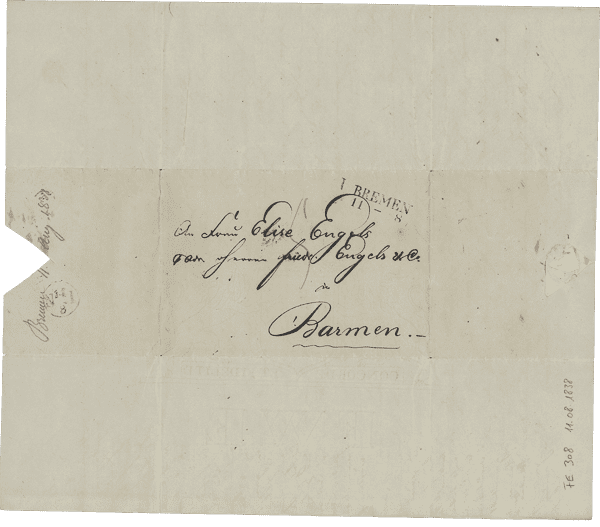 BREMEN
11 - 8
An Frau Elise Engels
Engels & C.
in
Barmen.
Bremen 11 Aug 1838
FE 308 11.08.1838